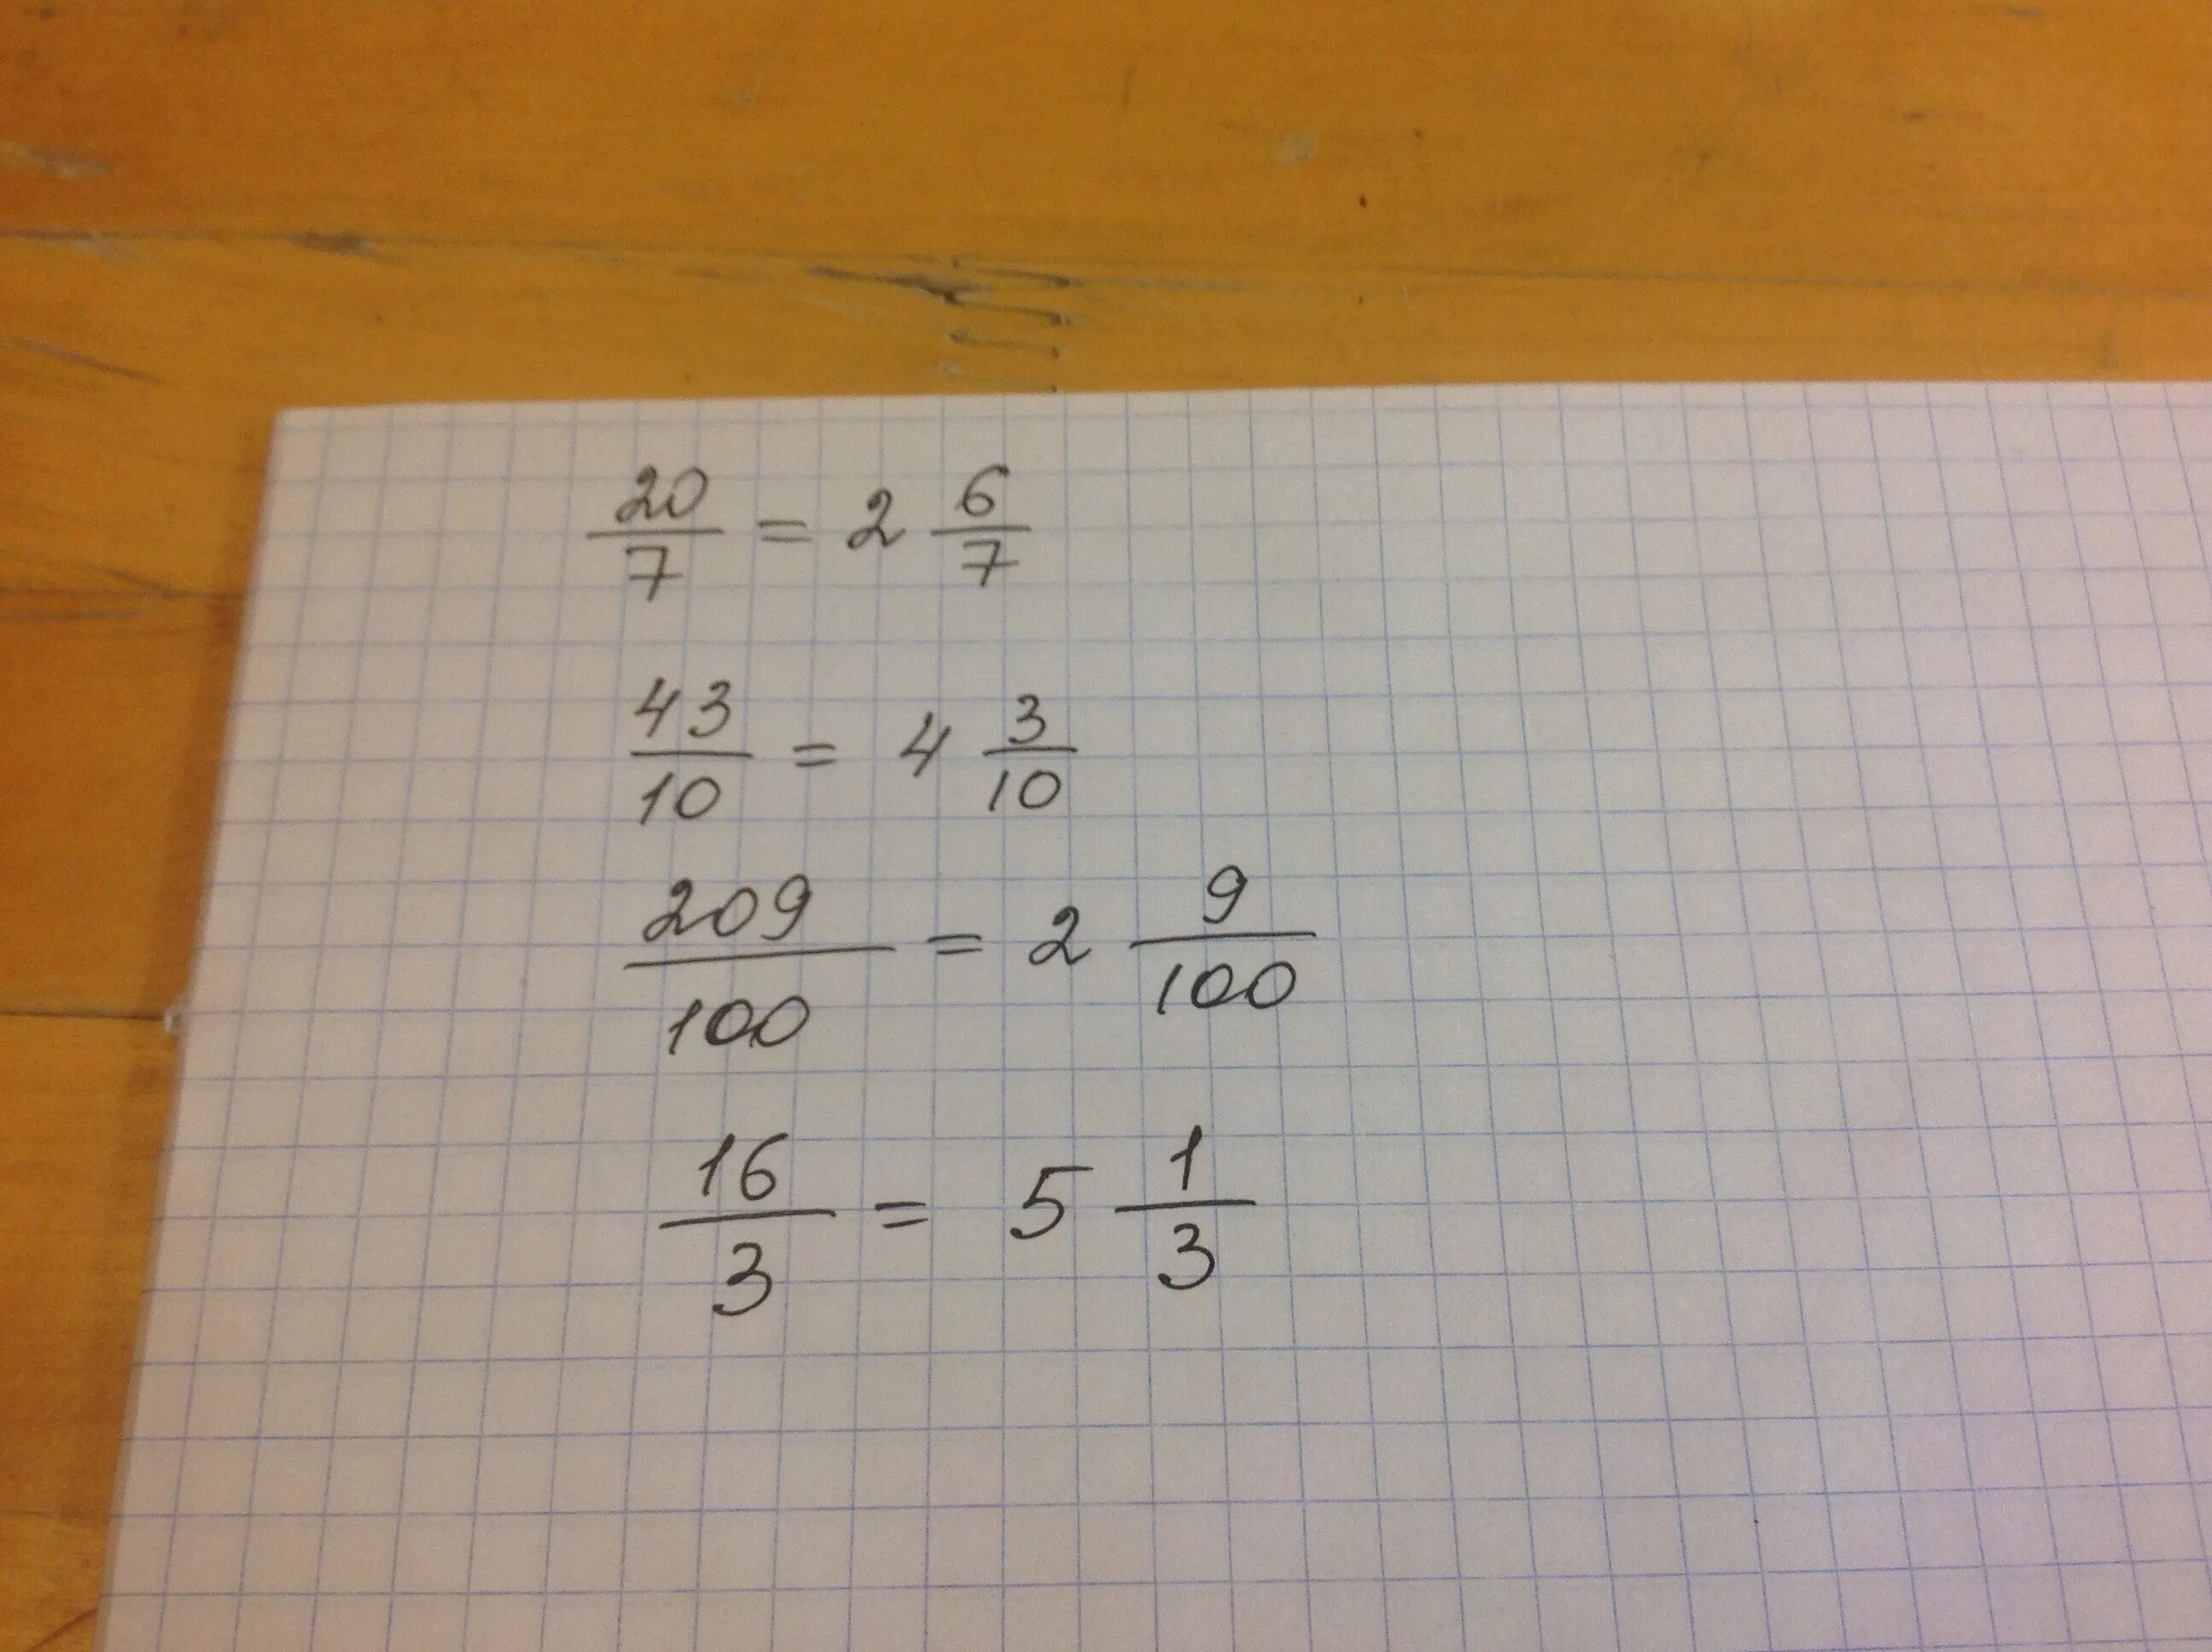 20/7 = 2 6/7
43/10 = 4 3/10
209/100 = 2 9/100
16/3 = 5 1/3